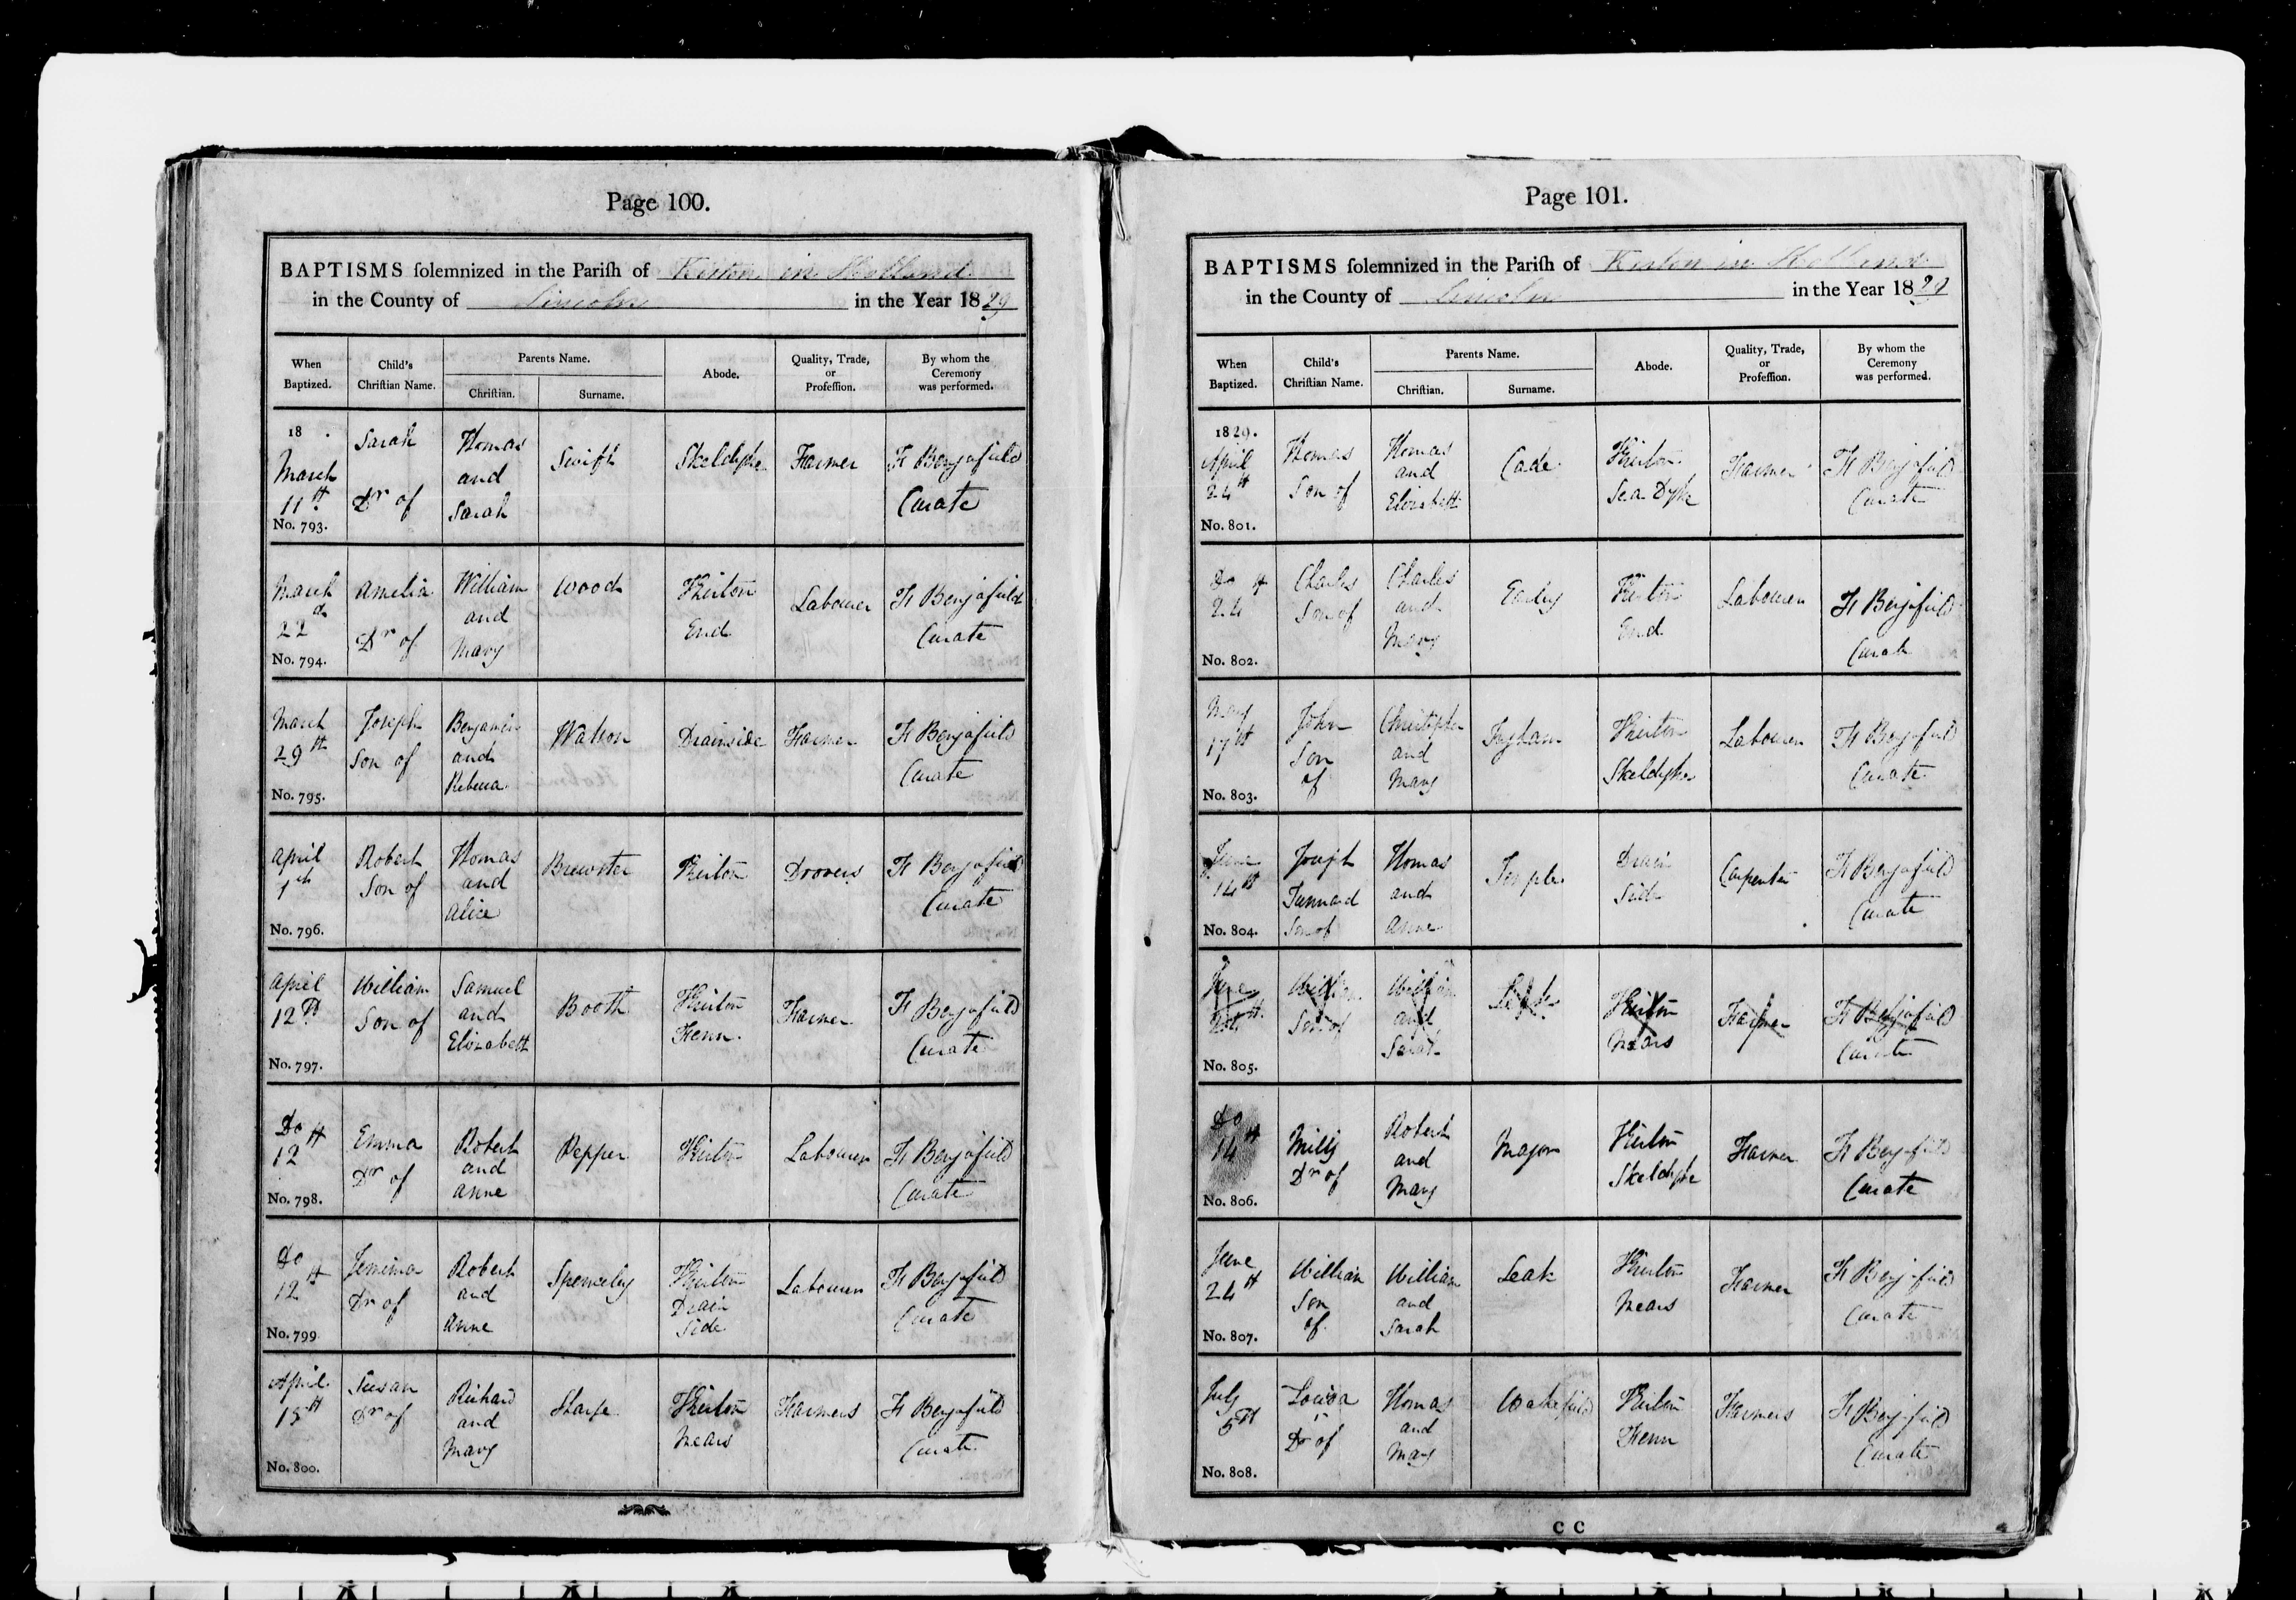 Page 100.
BAPTISMS solemnized in the Parish of Kirton in Holland
in the County of Lincoln in the Year 1829
When Baptized. Child's Christian Name. Parents Name. Christian. Surname. Abode. Quality, Trade, or Profession. By whom the Ceremony was performed.
18 . March 11th No. 793. Sarah Dr of Thomas and Sarah Swift Skeldyke Farmer H Benjafield Curate
March 22d No. 794. Amelia Dr of William and Mary Wood Kirton End Labourer H Benjafield Curate
March 29th No. 795. Joseph Son of Benjamin and Rebecca Watson Drainside Farmer H Benjafield Curate
April 1th No. 796. Robert Son of Thomas and Alice Brewster Kirton Drovers H Benjafield Curate
April 12th No. 797. William Son of Samuel and Elizabeth Booth Kirton Fenn Farmer H Benjafield Curate
Do 12th No. 798. Emma Dr of Robert and Anne Pepper Kirton Labourer H Benjafield Curate
Do 12th No. 799 Jemima Dr of Robert and Anne Spenceley Kirton Drain Side Labourer H Benjafield Curate
April 15th No. 800. Susan Dr of Richard and Mary Sharpe Kirton Mears Farmers H Benjafield Curate
Page 101.
BAPTISMS solemnized in the Parish of Kirton in Holland
in the County of Lincoln in the Year 1829
When Baptized. Child's Christian Name. Parents Name. Christian. Surname. Abode. Quality, Trade, or Profession. By whom the Ceremony was performed.
1829. April 24th No. 801. Thomas Son of Thomas and Elizabeth Cade Kirton Sea Dyke Farmer H Benjafield Curate
Do 24th No. 802. Charles Son of Charles and Mary Kirton End Labourer H Benjafield Curate
May 17th No. 803. John Son of Christopher and Mary Ingham Kirton Skeldyke Labourer H Benjafield Curate
June 14th No. 804. Joseph Tunnard Son of Thomas and Anne Temple Drain Side Carpenter H Benjafield Curate
June No. 805. William Son of William and Sarah Kirton Mears Farmer H Benjafield Curate
Do 14th No. 806. Milly Dr of Robert and Mary Major Kirton Skeldyke Farmer H Benjafield Curate
June 24th No. 807. William Son of William and Sarah Leak Kirton Mears Farmer H Benjafield Curate
July 5th No. 808. Louisa Dr of Thomas and Mary Wakefield Kirton Fenn Farmers H Benjafield Curate
C C